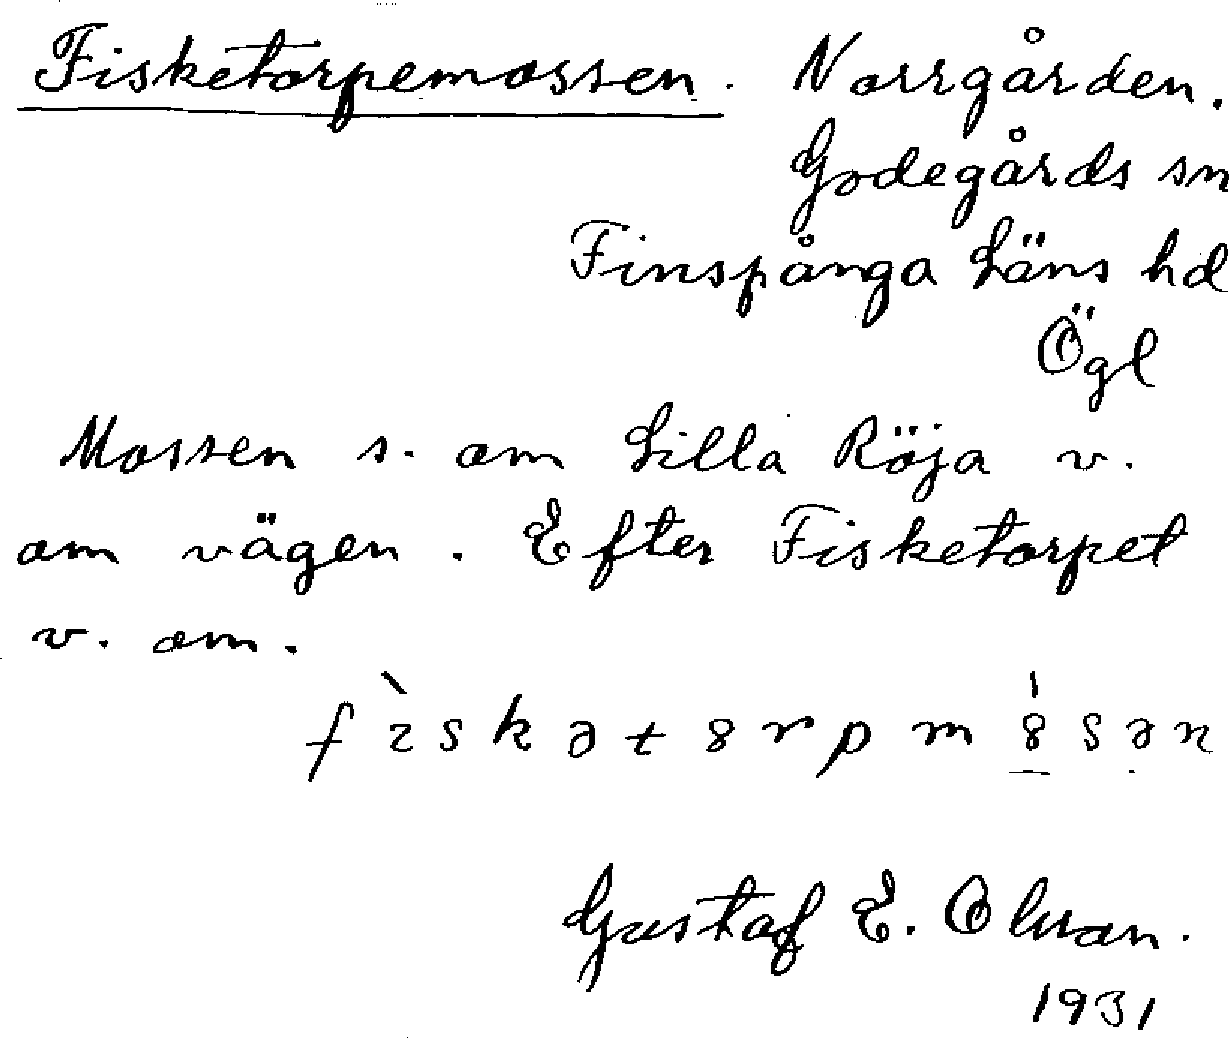 Fisketorpemossen. Norrgården.
Godegårds sn
Finspånga Läns hd
Ögl
Mossen s. om Lilla Röja v.
om vägen. Efter Fisketorpet
v. om.
Gustaf E.
1931